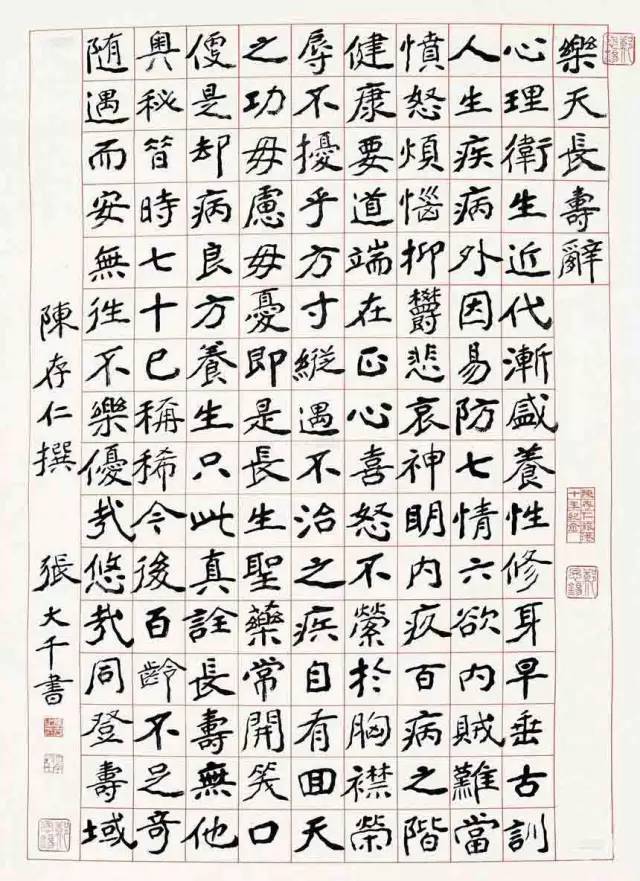 樂天長壽辭
心理衛生近代漸盛養性修身早垂古訓
人生疾病外因易防七情六欲內賊難當
憤怒煩惱抑欝悲哀神明內疚百病之階
健康要道端在正心喜怒不縈於胸襟榮
辱不擾乎方寸縱遇不治之疾自有囬天
之功毋慮毋憂即是長生聖藥常開笑口
便是却病良方養生只此真詮長壽無他
奧秘昔時七十已稱稀今後百齡不足奇
随遇而安無往不樂優哉悠哉同登壽域
陳存仁撰 張大千書